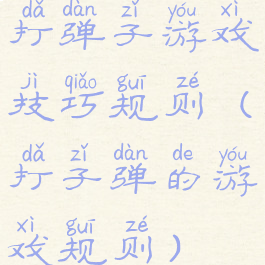 dǎ dàn zǐ yóu xì
打弹子游戏
jì qiǎo guī zé
技巧规则（
dǎ zǐ dàn de yóu
打子弹的游
xì guī zé
戏规则）